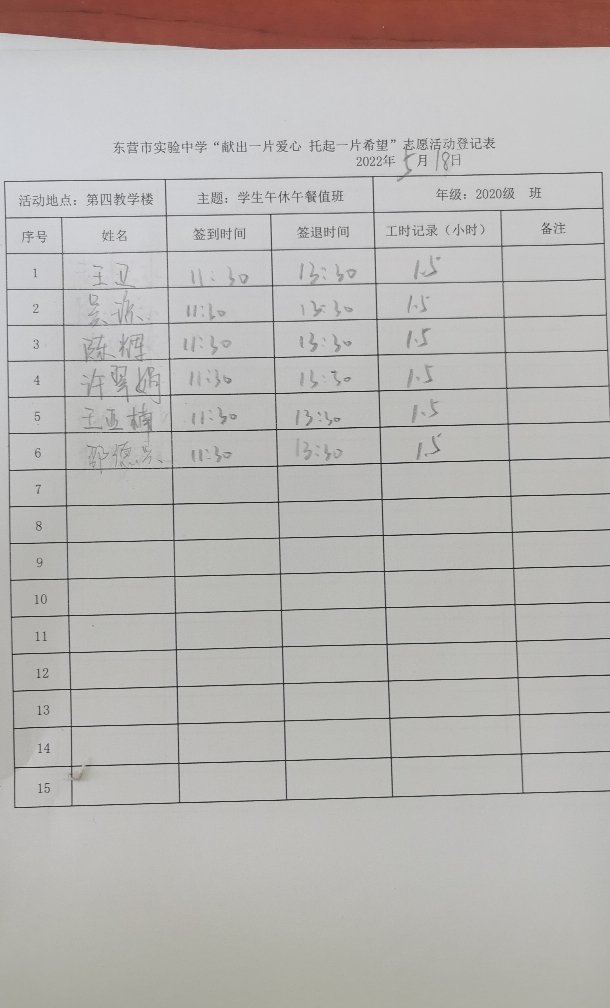 东营市实验中学“献出一片爱心 托起一片希望”志愿活动登记表
2022年5月18日
活动地点：第四教学楼 主题：学生午休午餐值班 年级：2020级 班
序号 姓名 签到时间 签退时间 工时记录（小时） 备注
1 王卫 11:30 13:30 1.5
2 吴 11:30 13:30 1.5
3 陈辉 11:30 13:30 1.5
4 许翠娟 11:30 13:30 1.5
5 王亚楠 11:30 13:30 1.5
6 邵德 11:30 13:30 1.5
7
8
9
10
11
12
13
14
15